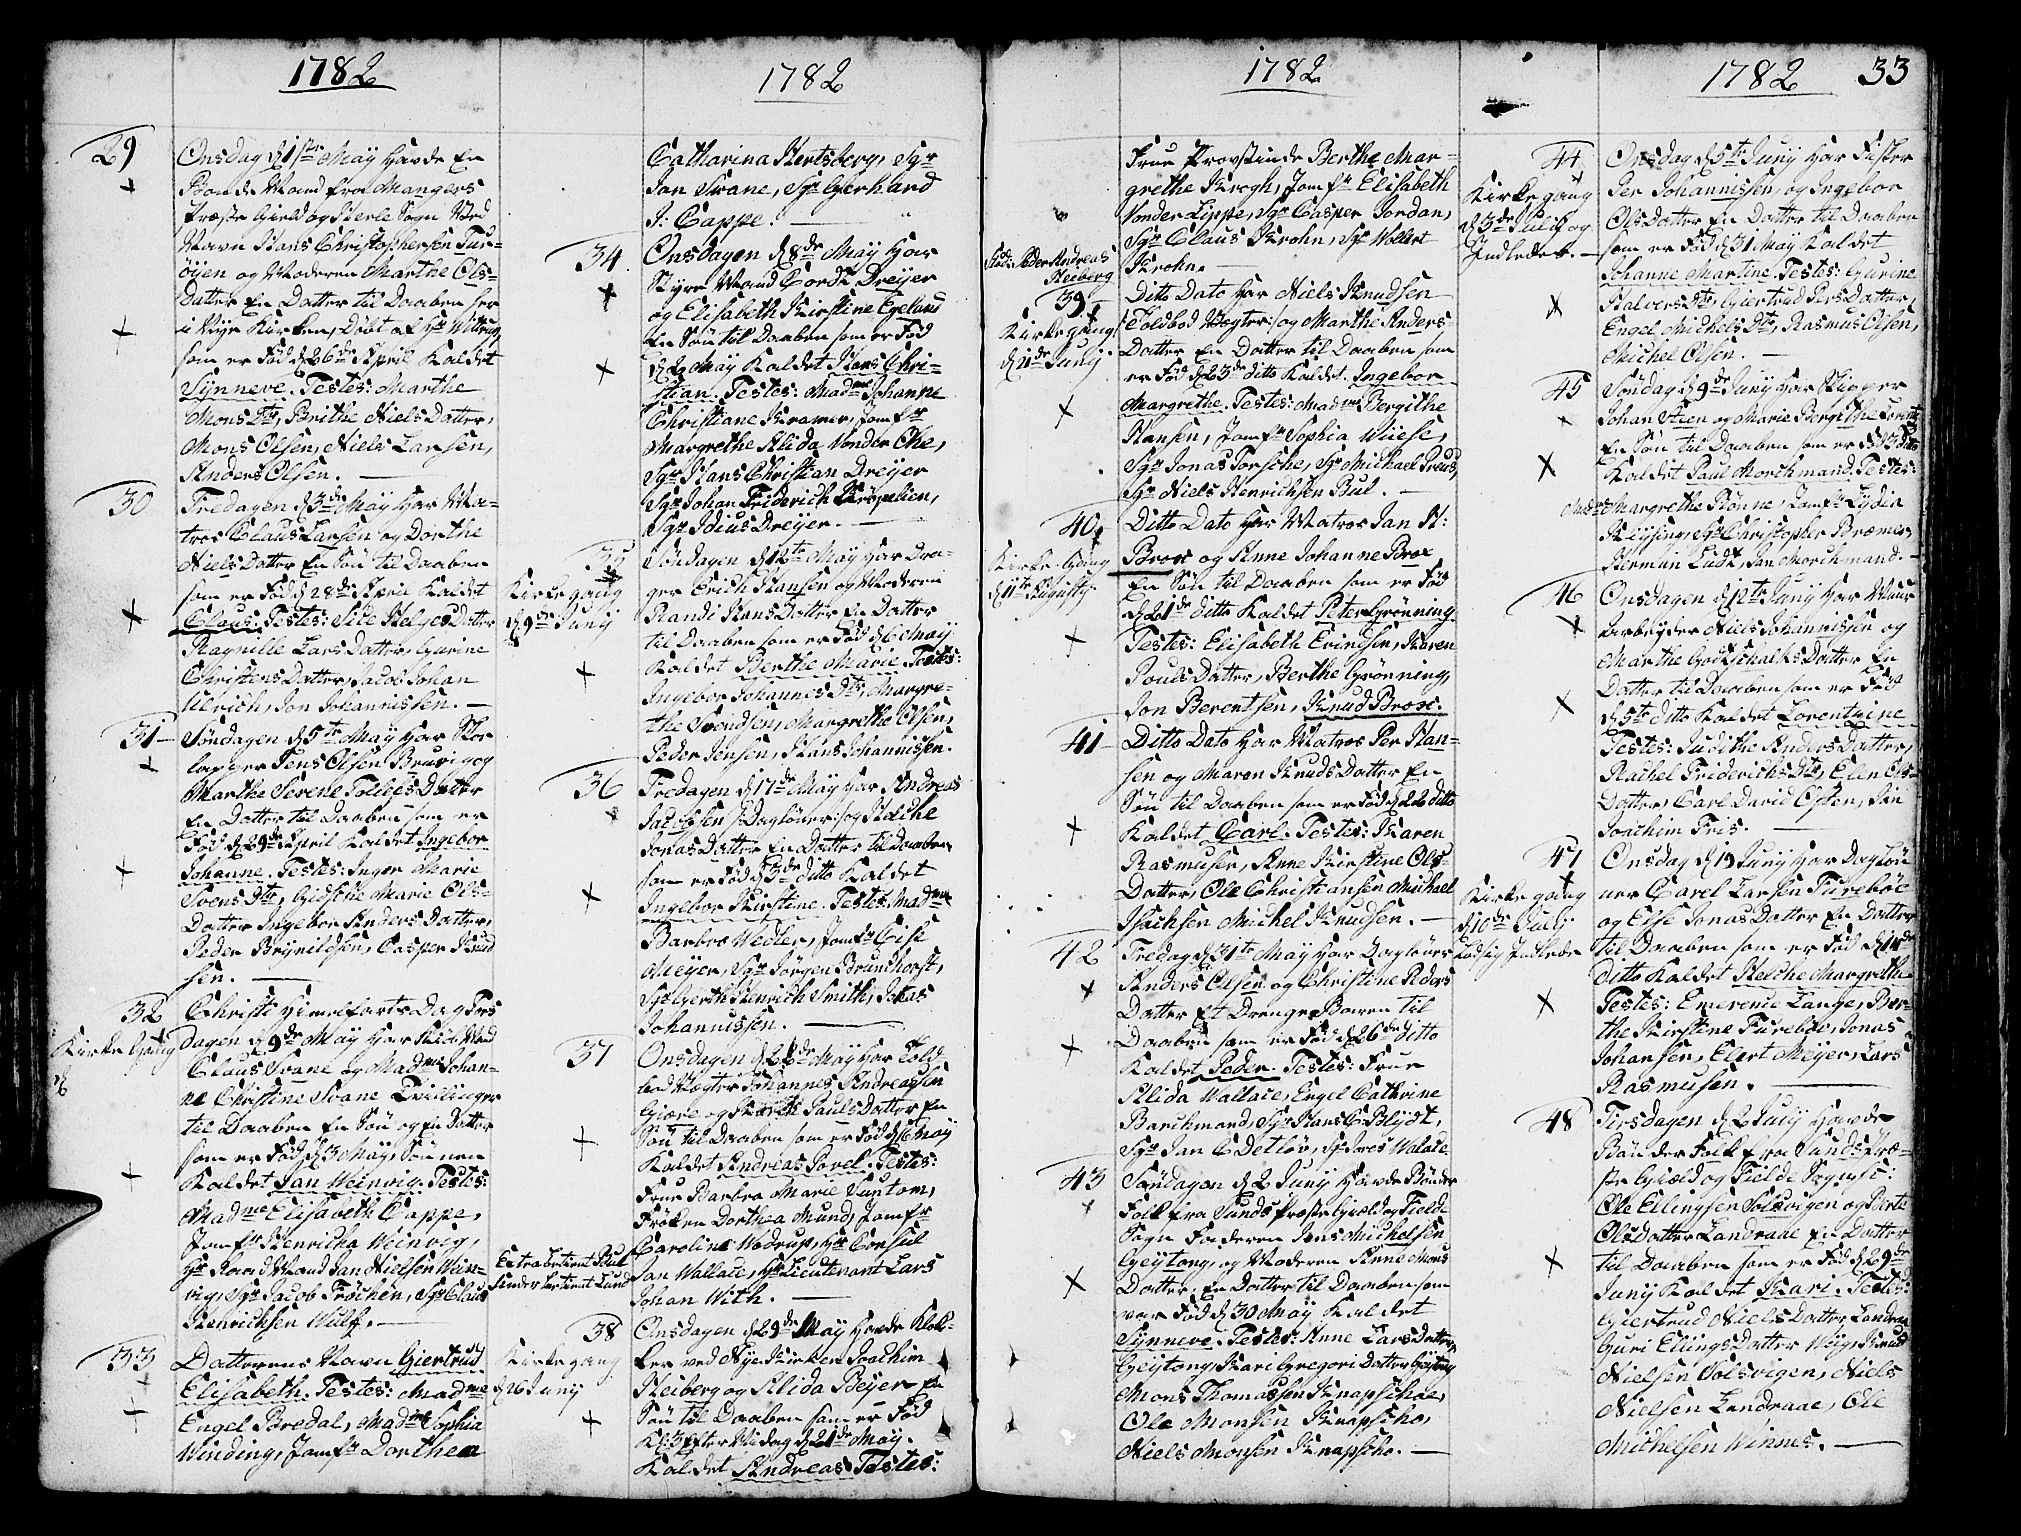 1782
29
Onsdag d 1ste May havde En
Bonde Mand fra Mangers
Præste Gield og Herle Sogn Ved
Navn Hans Christophersen Tur-
öyen og Moderen Marthe Ols-
Datter En Datter til Daaben her
i Nye Kirken, Döbt af Hr Wittrup,
som er Föd d 26de April Kaldet
Synneve. Testes: Marthe
Mons Dtr, Brithe Niels Datter,
Mons Olsen, Niels Larsen,
Anders Olsen. —
30
Fredagen d 3de May har Ma-
tros Claus Larsen og Dorthe
Niels Datter En Sön til Daaben
som er Föd d 28de April Kaldet
Claus. Testes: Sille Helges Datter
Ragnille Lars Datter, Gurine
Christens Datter, Jacob Johan
Ulrich, Jon Johannissen. —
31 —
Söndagen d 5te May har
Jens Olsen Bruvig og
Marthe Serene Tolles Datter
En Datter til Daaben som er
Föd d 29de April Kaldet Ingebor
Johanne. Testes: Inger Marie
Svens Dtr, Gidsche Marie Ols-
Datter Ingebor Anders Datter,
Peder Brynildsen, Casper Knud
sen. —
32
Kirke Gang
Christi Himelfarts Dag Tors
dagen d 9de May har Kiöb Mand
Claus Svane og Madme Johan-
ne Christine Svane Tvillinger
til Daaben En Sön og En Datter
som er Föd d 3 May, Sönnen
Kaldet Jan Weinvig. Testes:
Madme Elisabeth Cappe,
Jomfr Henricha Weinvig,
Hr Raad Mand Jan Nielsen Wein-
vig, Sgr Jacob Fröchen, Sgr Claus
Henrichsen Wulff. —
33
Datterens Navn Giertrud
Elisabeth. Testes: Madme
Engel Bredal, Madme Sophia
Winding, Jomfr Dorthea
1782
Catharina Hertsberg, Sgr
Jan Svane, Sgr Gerhard
J: Cappe. —
34
Onsdagen d 8de May har
Styre Mand Cordt Dreyer
og Elisabeth Kirstine Egeland
En Sön til Daaben som er Föd
d 2 May Kaldet Hans Chri-
stian. Testes: Madme Johanne
Christiane Kramer, Jomfr
Margrethe Alida Vonder Ohe,
Sgr Hans Christian Dreyer
Sgr Johan Friderich
Sgr Idius Dreyer. —
35
Kirke gang
d 9de Juny
Söndagen d 12te May har Dra-
ger Erich Hansen og Moderen
Randi Hans Datter En Datter
til Daaben som er Föd d 6 May
Kaldet Berthe Marie Testes:
Ingebor Johannes Dtr, Margre-
the Svendsen, Margrethe Olsen,
Peder Jensen, Hans Johannissen.
36
Fredagen d 17de May har Andreas
Jacobsen /: Daglöner :/ og Helche
Jonas Datter En Datter til Daaben
som er Föd d 3de ditto Kaldet
Ingebor Kirstine. Testes Madme
Barbra Wedler, Jomfr Cise
Meyer, Sgr Jörgen Brundhorst,
Sgr Gerth Henrich Smith, Johas
Johannissen. —
37
Onsdagen d 22de May har Told
bod Vogter Johannes Andreassen
Giære og Marith Pauls Datter En
Sön til Daaben som er Föd d 16 May
Kaldet Andreas Povel. Testes:
Frue Barbra Marie Suntom,
Fröken Dorthea Mund, Jomfr
Caroline Wedrup, Hr Consul
Jan Wallace, Hr Lieutenant Lars
Johan With. —
38
Kirke gang
d 26 Juny
Onsdagen d 29de May havde Klok-
ker ved Nye Kirken Joachim
Heiberg og Alida Beyer En
Sön til Daaben som er Föd
Kl: 3 Efter Midag d 21de May.
Kaldet Andreas Testes:
1782
Frue Provstinde Berthe Mar-
grethe Krogh, Jomfr Elisabeth
Vonder Lippe, Sgr Casper Jordan,
Sgr Claus Krohn, Sgr Wollert
Krohn.
Peder Andreas
Heiberg
39 —
Kirke gang
d 11de Juny
Ditto Dato har Niels Knudsen
/: Toldbod Vogter :/ og Marthe Anders-
Datter En Datter til Daaben som
er Föd d 23de ditto Kaldet Ingebor
Margrethe. Testes: Madme Bergithe
Hansen, Jomfr Sophia Wiese,
Sgr Jonas Forsche, Sgr Michael Preus,
Sgr Niels Henrichsen Bul. —
40
Kirke Gang
d 11te Augusty.
Ditto Dato har Matros Jan H:
Brose og Anne Johanne Brose
En Sön til Daaben som er Föd
d 21de ditto Kaldet Peter Grönning
Testes: Elisabeth Evindsen, Karen
Pouls Datter, Berthe Grönning,
Jon Berentsen, Knud Brose.
41 —
Ditto Dato har Matros Per Han-
sen og Maren Knuds Datter En
Sön til Daaben som er Föd d 22 ditto
Kaldet Carl. Testes: Karen
Rasmusen, Anne Kirstine Ols-
Datter, Ole Christiansen Michael
Isachsen Michel Knudsen. —
42
Fredag d 31te May har Daglöner
Anders Olsen og Christine Peders
Datter Et Drenge Baren til
Daaben som er Föd d 26de ditto
Kaldet Peder. Testes: Frue
Alida Wallace, Engel Cathrine
Barchmand, Sgr Hans C Blydt,
Sgr Jan C Detlöv, Sr Jores Walace.
43
Söndagen d 2 Juny havde Bönder
Folk fra Sunds Præste Gield og Tielde
Sogn Faderen Jens Michelsen
Geytong, og Moderen Anne Mons
Datter, En Datter til Daaben som
var Föd d 30 May Kaldet
Synneve. Testes: Anne Lars Datter
Geytong, Kari Gregori Datter Geytong
Mons Thomassen Knapschoe,
Ole Monsen Knapscho,
Niels Monsen Knapscho. —
1782
33
44
Kirke gang
d 3de July og
Indledet. —
Onsdag d 5te Juny har Fister
Per Johannissen, og Ingebor
Ols Datter En Datter til Daaben
som er Föd d 31 May Kaldet
Johanne Martine. Testes: Gurine
Halvors Dtr, Giertrud Pers Datter,
Engel Michels Dtr, Rasmus Olsen,
Michel Olsen. —
45
Söndag d 9de Juny har Skipper
Johan Steen og Marie Bergithe
En Sön til Daaben som er Föd 3 ditto
Kaldet Paul Morchmand. Testes:
Madme Margrethe Rönne, Jomfr Lydia
Kiysing, Sgr Christopher Bræmer,
Herman Ludt, Jan Morchmand. —
46
Onsdagen d 12te Juny har Muur
Arbeyder Niels Johannissen og
Marthe Godtschalks Datter En
Datter til Daaben som er Föd
d 5te ditto Kaldet Lorentzine
Testes: Judithe Anders Datter,
Rachel Friderichs Dtr, Elen Ols-
Datter, Carl David Olsen, Jan
Joachim Fris. —
47
Kirke gang
d 10de July
Lod sig Indlede
Onsdag d 19 Juny har Daglön
ner Carel Larsen Fureböe
og Else Jonas Datter En Datter
til Daaben som er Föd d 14de
Ditto Kaldet Helche Margrethe
Testes: Emerence Lange, Ber-
the Kirstine Fureböe, Jonas
Johansen, Elert Meyer, Lars
Rasmusen. —
48
Tirsdagen d 2 July havde
Bönder Folk fra Sunds Præ-
ste Gield og Tielde Sogn
Ole Ellingsen Solsvigen og Birte
Ols Datter Landraae En Datter
til Daaben som er Föd d 29de
Juny Kaldet Kari. Testes:
Giertrud Niels Datter Landraa
Guri Ellings Datter Weig, Knud
Nielsen Solsvigen, Niels
Nielsen Landraae, Ole
Michelsen Winnes. —